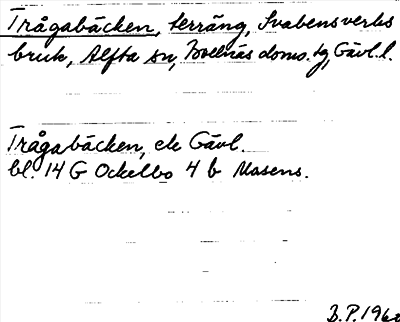 Trågabäcken, terräng, Svabensverks
bruk, Alfta sn, Bollnäs doms. tg, Gävl. l.
Trågabäcken, ek Gävl.
bl. 14 G Ockelbo 4 b Masens.
B.P. 196